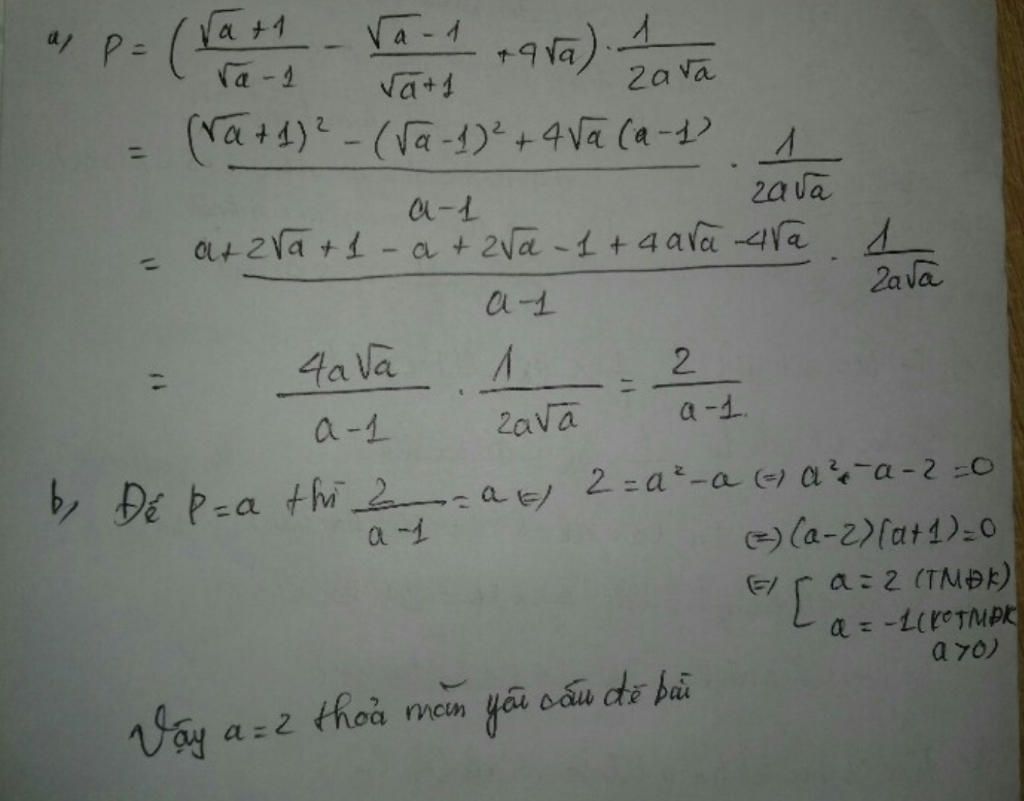 a, P = (\frac{√a + 1}{√a - 1} - \frac{√a - 1}{√a + 1} + 4√a) · \frac{1}{2a√a}
= \frac{(√a + 1)² - (√a - 1)² + 4√a (a - 1)}{a - 1} · \frac{1}{2a√a}
= \frac{a + 2√a + 1 - a + 2√a - 1 + 4a√a - 4√a}{a - 1} · \frac{1}{2a√a}
= \frac{4a√a}{a - 1} · \frac{1}{2a√a} = \frac{2}{a - 1}
b, Để P = a thì \frac{2}{a - 1} = a (=) 2 = a² - a (=) a² - a - 2 = 0
(=) (a - 2)(a + 1) = 0
(=) [ a = 2 (TMĐK)
a = -1 (K° TMĐK
a > 0)
Vậy a = 2 thoả mãn yêu cầu đề bài